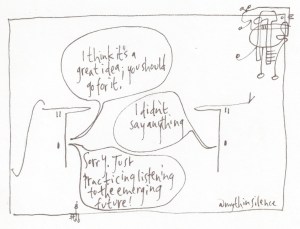 I think it's a
great idea; you should
go for it.
I didn't
say anything
Sorry. Just
practicing listening
to the emerging
future!